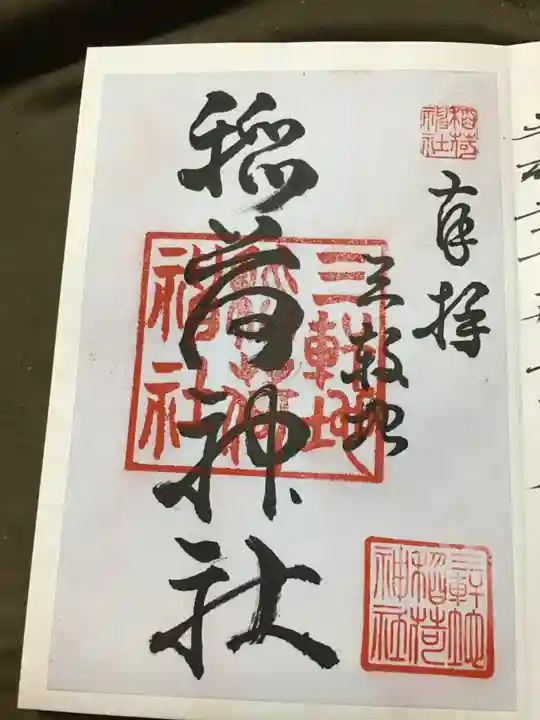 奉拝
三軒地
稲荷神社
稲荷
神社
三軒地
稲荷
神社
三軒地
稲荷
神社